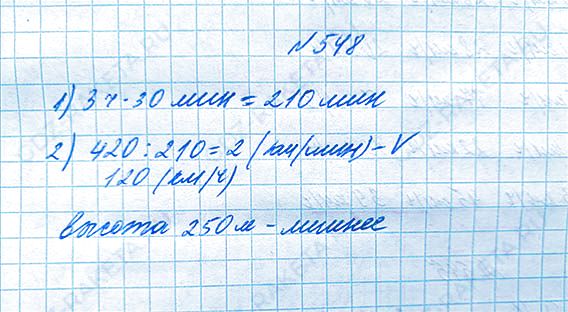 №548
1) 3ч·30 мин = 210 мин
2) 420 : 210 = 2 (км/мин) – V
120 (км/ч)
высота 250 м – лишнее